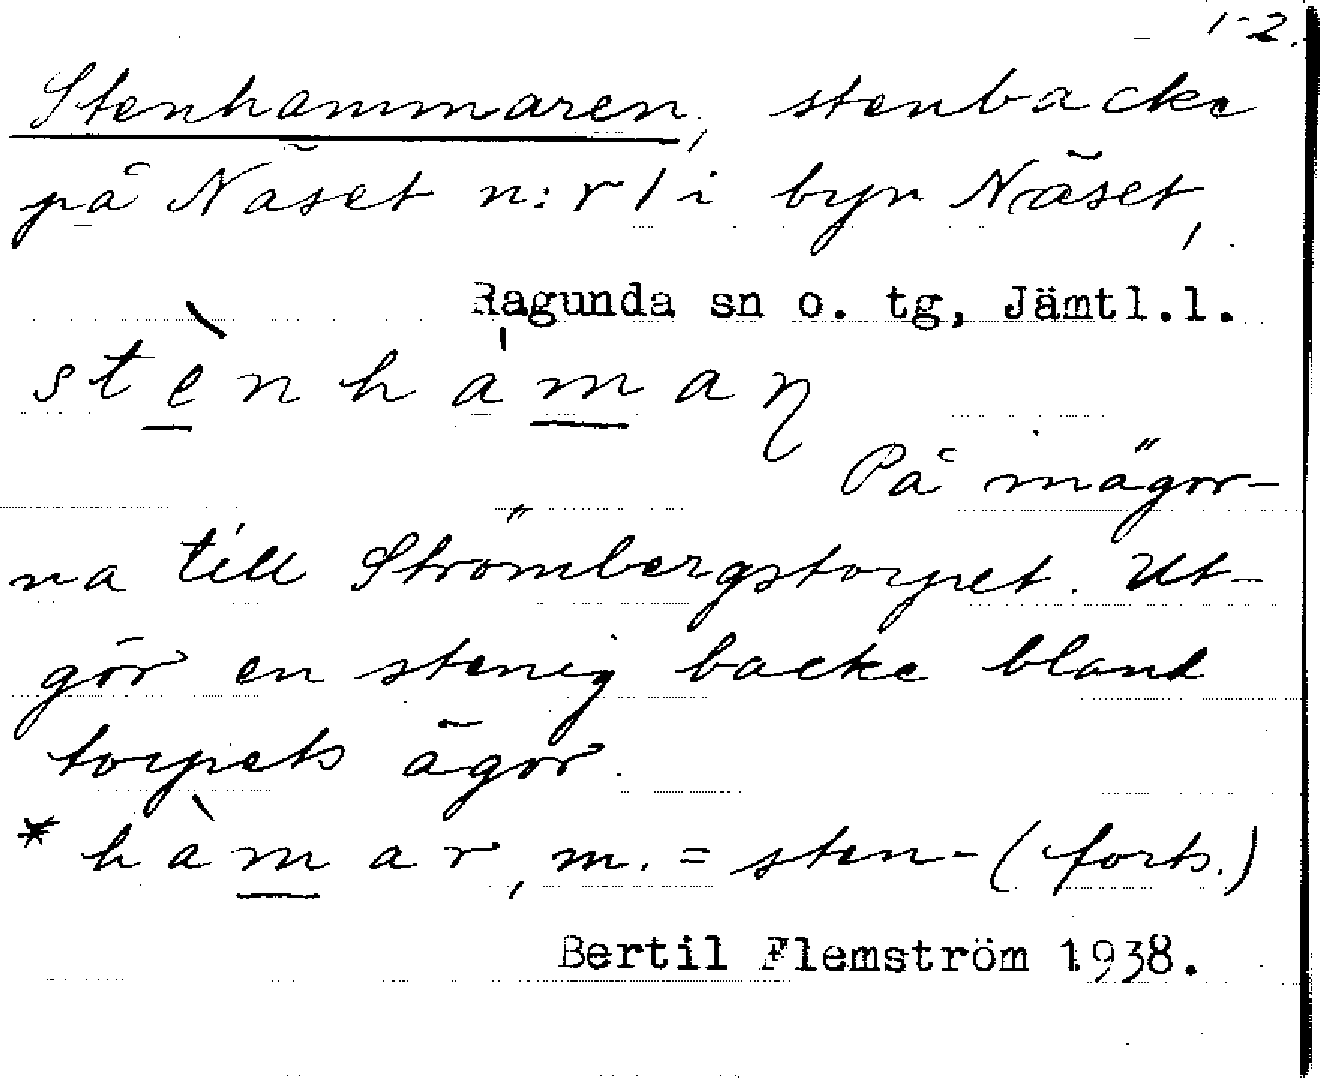 1-2.
Stenhammaren, stenbacke
på Näset n:r 1 i byn Näset,
Ragunda sn o. tg, Jämtl.l.
stènhàmaη
På inägor-
na till Strömbergstorpet. Ut-
gör en stenig backe bland
torpets ägor.
* hàmar, m. = sten- (forts.)
Bertil Flemström 1938.